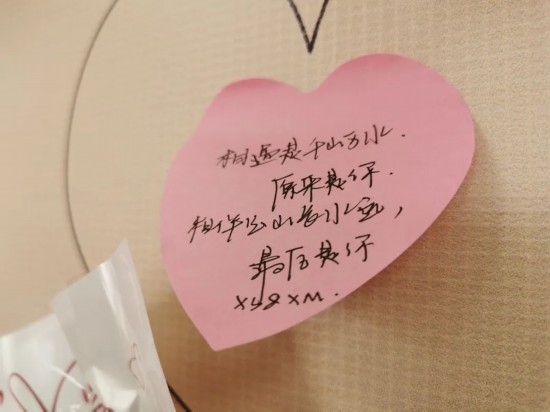 相逢是千山万水.
原来是你.
相伴是山长水远,
最后是你
XYZ XM.